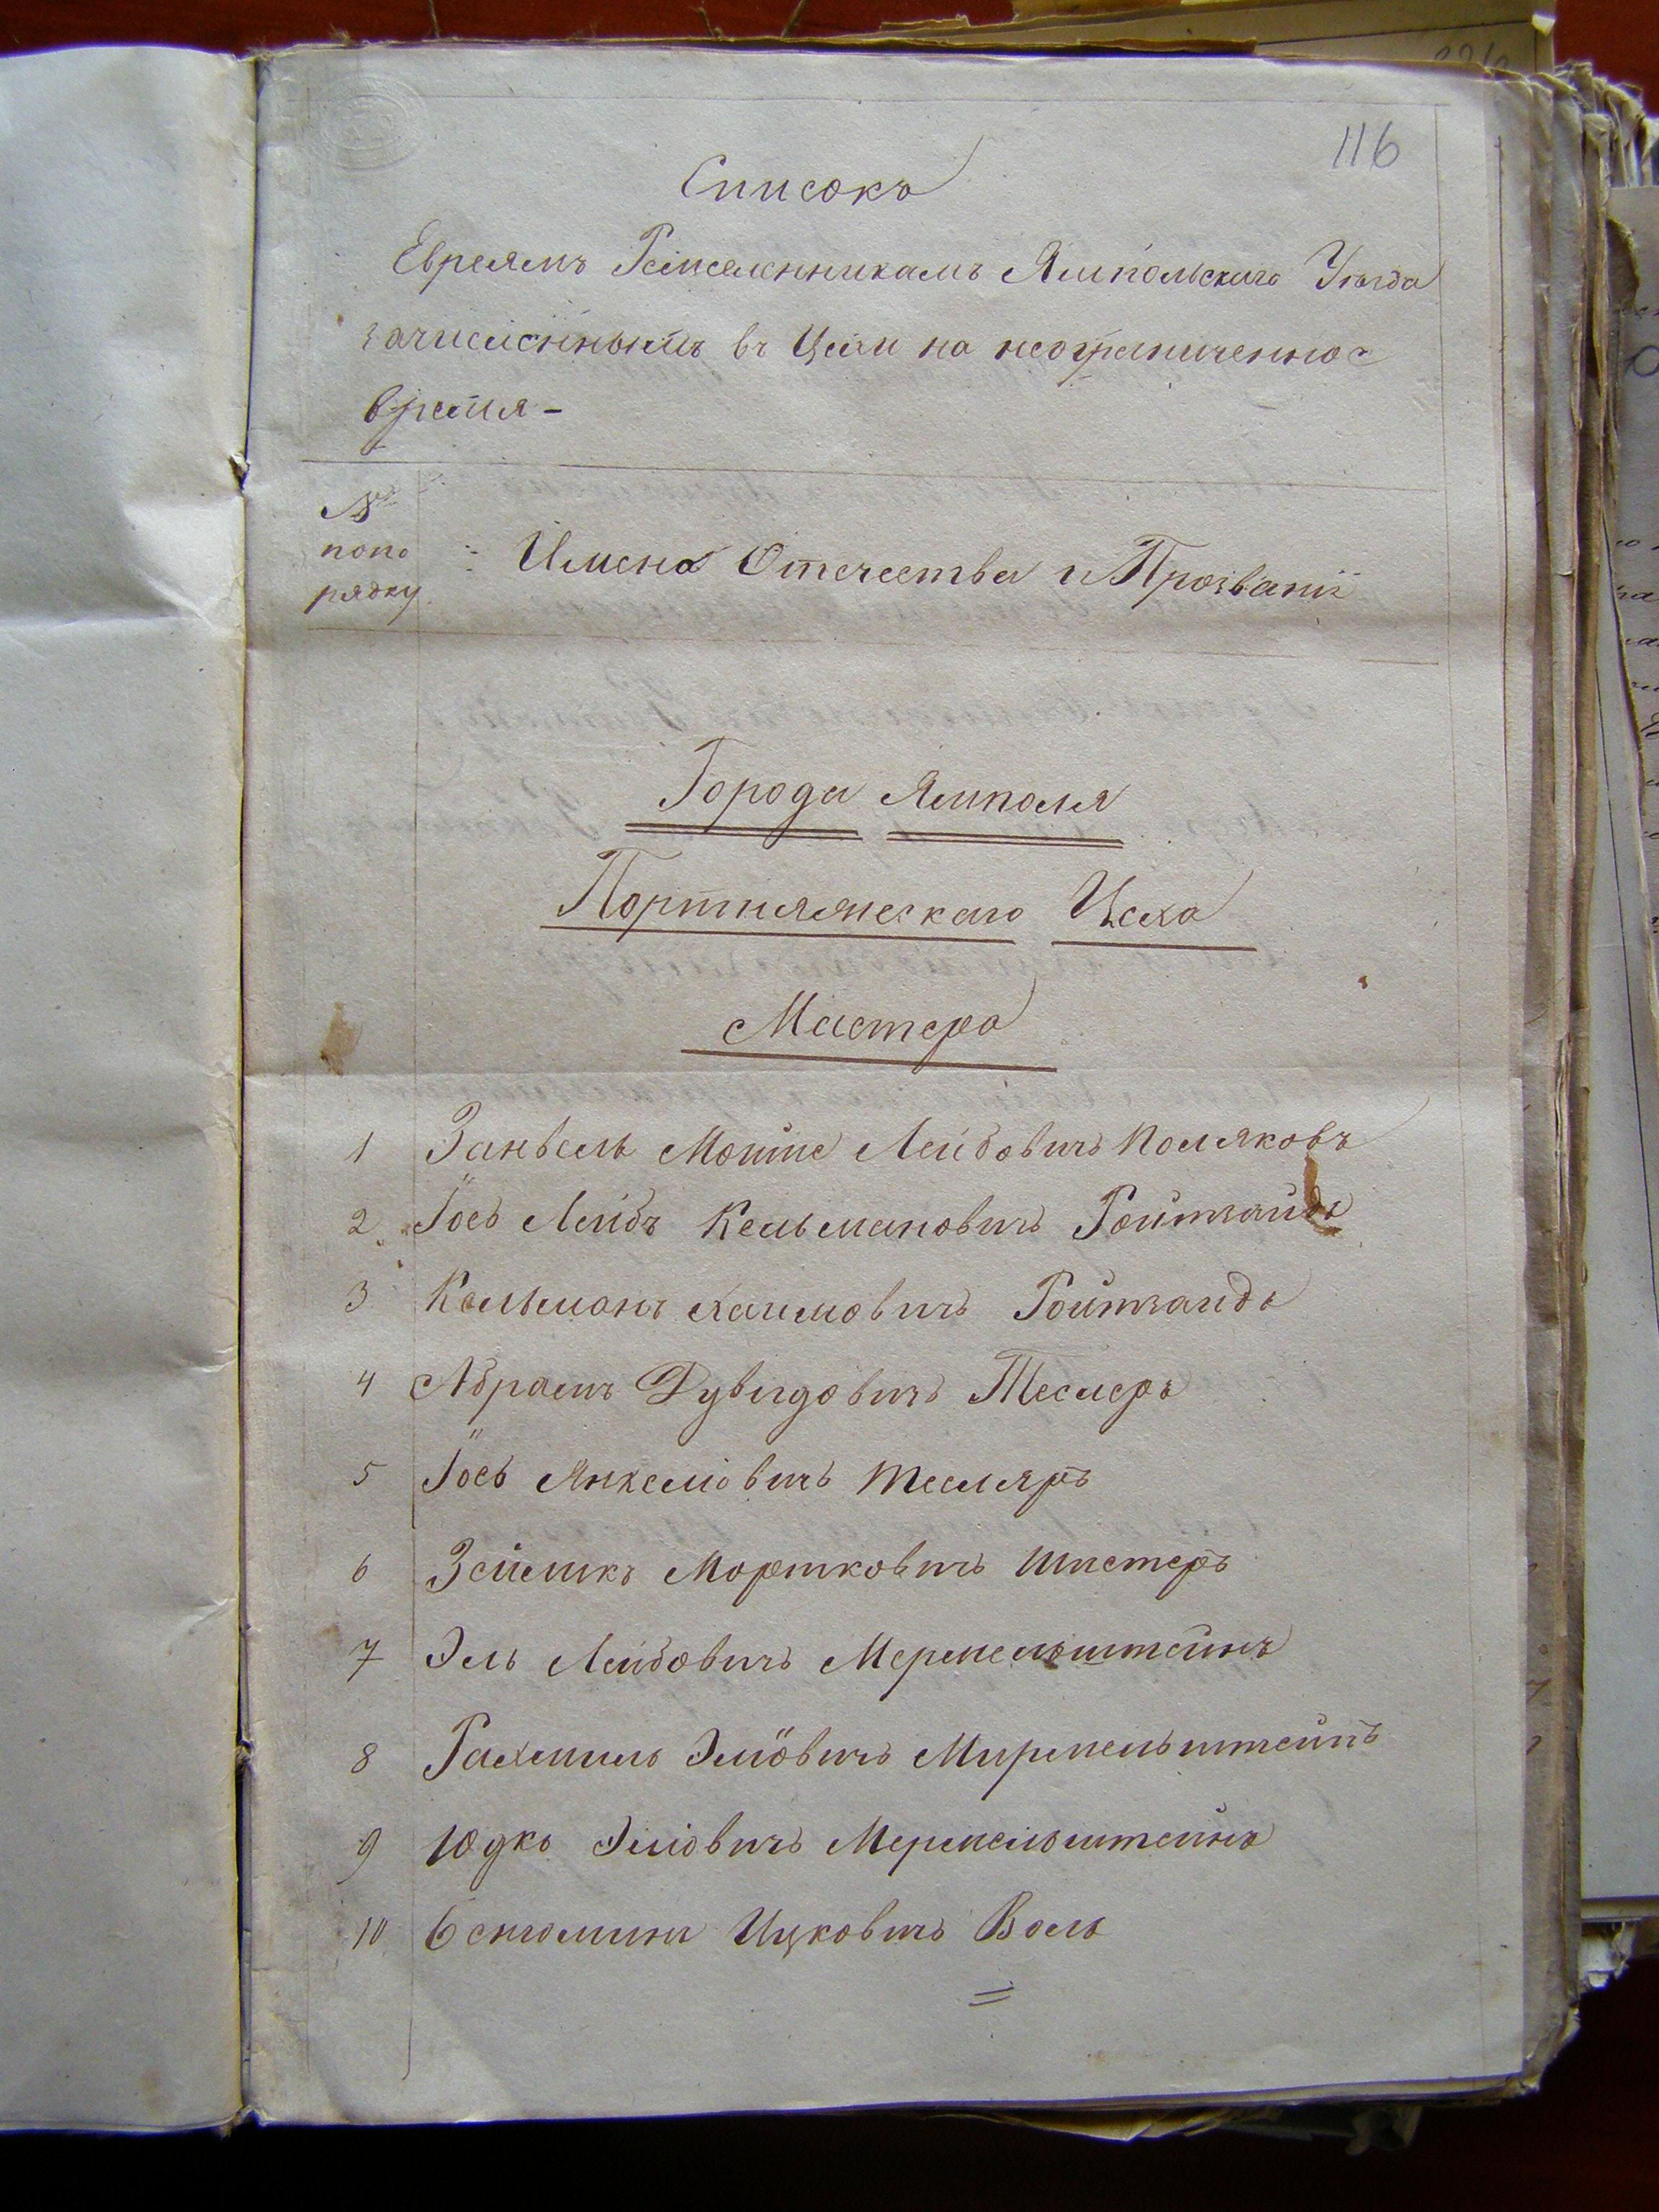 116
Списокъ
Евреямъ Ремесленникамъ Ямпольскаго Уѣзда
зачисленнымъ въ Цехи на неограниченное
время –
№
попо
рядку
Имена Отечества и Прозваніи
Города Ямполя
Портняжескаго Цеха
Мастера
1 Занвель Мошко Лейбовичъ Поляковъ
2 Іось Лейбъ Кельмановичъ Ройтгандъ
3 Кельманъ Хаимовичъ Ройтгандъ
4 Абрамъ Дувидовичъ Теслеръ
5 Іось Янкелювичъ Тесляръ
6 Зейликъ Мортковичъ Шпетеръ
7 Эль Лейбовичъ Мермельштейнъ
8 Рахмиль Элювичъ Мирмельштейнъ
9 Юдко Элювичъ Мермельштейнъ
10 Бенюминъ Ицковичъ Воль